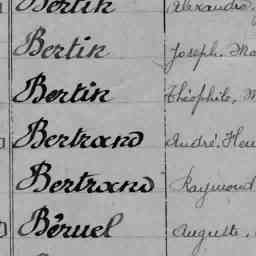 Bertin Alexandre,
Bertin Joseph. Ma
Bertin Théophile, M
Bertrand André. Hen
Bertrand Raymond
Béruel Auguste.